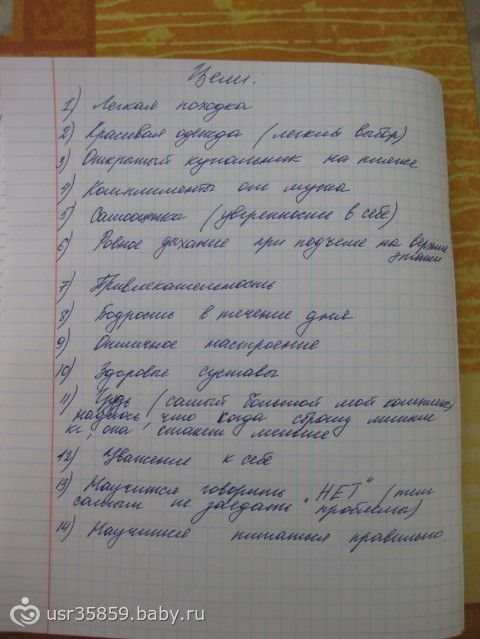 Цели:
1) Легкая походка
2) Красивая одежда (легкий выбор)
3) Открытый купальник на пляже
4) Комплименты от мужа
5) Самооценка (уверенность в себе)
6) Ровное дыхание при подъеме на верхние
этажи
7) Привлекательность
8) Бодрость в течение дня
9) Отличное настроение
10) Здоровые суставы
11) Грудь (самый большой мой комплекс,
надеюсь, что когда сброшу лишние
кг, она станет меньше
12) Уважение к себе
13) Научиться говорить "НЕТ" (тем
самым не заедать проблемы)
14) Научиться питаться правильно.
usr35859.baby.ru